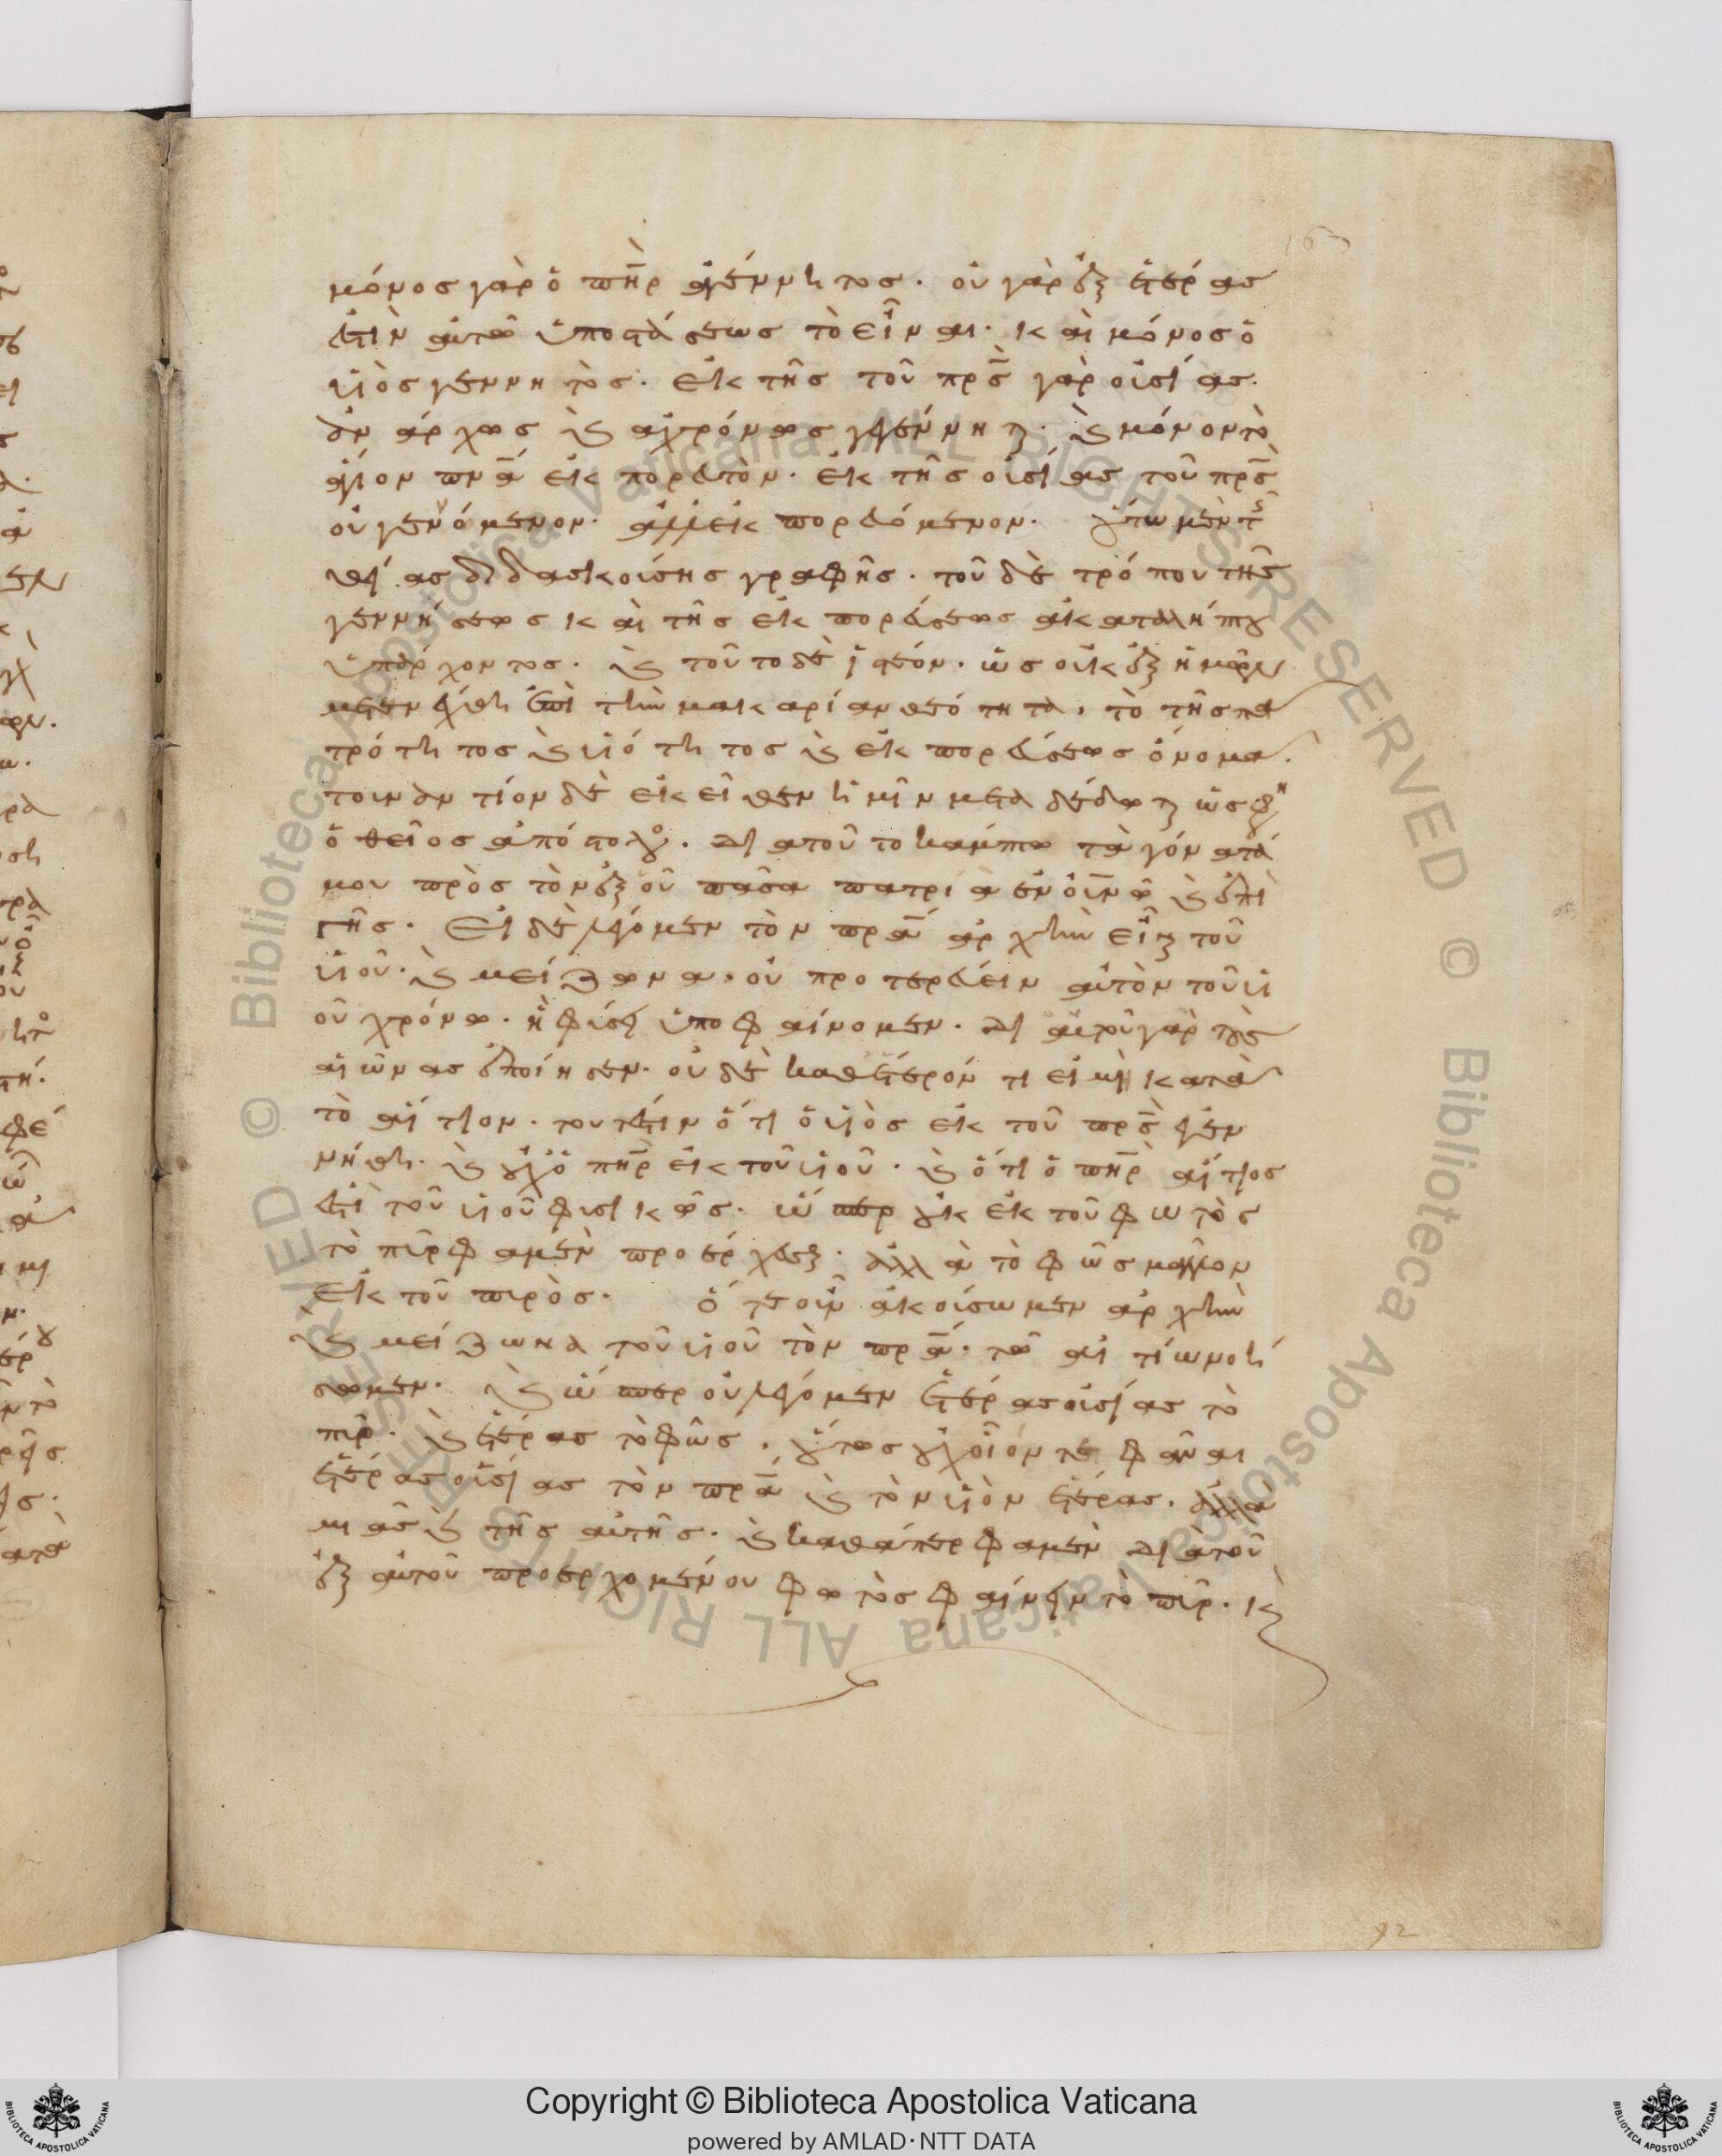 163
μόνος γὰρ ὁ πὴρ ἀγέννητος. οὐ γὰρ ἐξ ἑτέρας
ἐστὶν αὐτῶ ὑποστάσεως τὸ εἶναι. καὶ μόνος ὁ
υἱὸς γεννητὸς. ἐκ τῆς τοῦ πρς γὰρ οὐσίας.
ἀνάρχως καὶ ἀχρόνως γεγέννηται. καὶ μόνον τὸ
ἅγιον πνα ἐκπορευτὸν. ἐκ τῆς οὐσίας τοῦ πρς
οὐ γεννόμενον. ἀλλ' ἐκπορευόμενον. οὕτω μὲν τῆς
θείας διδασκούσης γραφῆς. τοῦ δὲ τρόπου τῆς
γεννήσεως καὶ τῆς ἐκπορεύσεως ἀκαταλήπτου
ὑπάρχοντος. καὶ τοῦτο δὲ ἰστέον. ὡς οὐκ ἐξ ἡμῶν
μετενέχθη ἐπὶ τὴν μακαρίαν θεότητα, τὸ τῆς πα
τρότητος καὶ υἱότητος καὶ ἐκπορεύσεως ὄνομα.
τοὐναντίον δὲ ἐκεῖθεν ἡμῖν μεταδέδωται ὥς φην
ὁ θεῖος ἀπόστολος. διατοῦτο κάμπτω τὰ γόνατά
μου πρὸς τὸν ἐξ οὗ πᾶσα πατριὰ ἐν οὐνῶ καὶ ἐπὶ
γῆς. Εἰ δὲ λέγομεν τὸν πρα ἀρχὴν εἶναι τοῦ
υἱοῦ. καὶ μείζωνα. οὐ προτερεύειν αὐτὸν τοῦ υἱ
οῦ χρόνω. ἢ φύσει ὑποφαίνομεν. δι' αὐτοῦ γὰρ τοὺς
αἰῶνας ἐποίησεν. οὐδὲ καθέτερόν τι εἰ μὴ κατὰ
τὸ αἴτιον. τουτέστιν ὅτι ὁ υἱὸς ἐκ τοῦ πρς ἐγεν
νήθη. καὶ οὐχ ὁ πὴρ ἐκ τοῦ υἱοῦ. καὶ ὅτι ὁ πὴρ αἴτιος
ἐστὶ τοῦ υἱοῦ φυσικῶς. ὥσπερ οὐκ ἐκ τοῦ φωτὸς
τὸ πῦρ φαμὲν προσέρχεσθαι. ἀλλὰ τὸ φῶς μᾶλλον
ἐκ τοῦ πυρὸς. ὅτε οὖν ἀκούσωμεν ἀρχὴν
καὶ μείζωνα τοῦ υἱοῦ τὸν πρα. τῶ αἰτίω νοή
σωμεν. καὶ ὥσπερ οὐ λέγομεν ἑτέρας οὐσίας τὸ
πῦρ. καὶ ἑτέρας τὸ φῶς. οὕτως οὐχ οἷόν τε φᾶναι
ἑτέρας οὐσίας τὸν πρα καὶ τὸν υἱὸν ἑτέρας. ἀλλὰ
μιᾶς καὶ τῆς αὐτῆς. καὶ καθάπερ φαμὲν διὰ τοῦ
ἐξ αὐτοῦ προσερχομένου φωτὸς φαίνειν τὸ πῦρ. καὶ
92
Copyright © Biblioteca Apostolica Vaticana
powered by AMLAD·NTT DATA